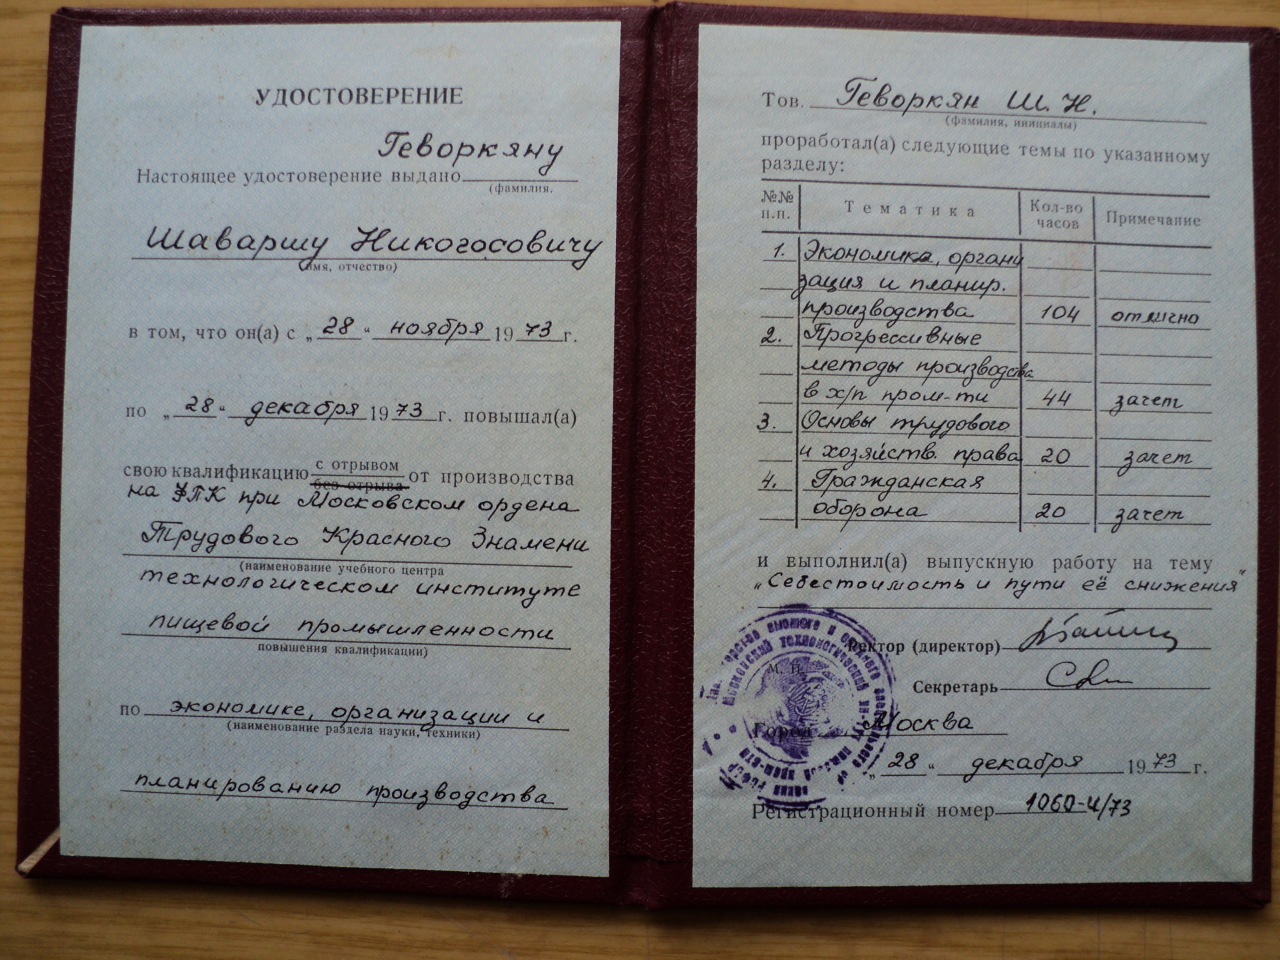 УДОСТОВЕРЕНИЕ
Геворкяну
Настоящее удостоверение выдано
(фамилия.
Шаваршу Никогосовичу
(имя, отчество)
в том, что он(а) с „28“ ноября 1973 г.
по „28“ декабря 1973 г. повышал(а)
с отрывом
свою квалификацию без отрыва от производства
на ФПК при Московском ордена
Трудового Красного Знамени
(наименование учебного центра
технологическом институте
пищевой промышленности
повышения квалификации)
по экономике, организации и
(наименование раздела науки, техники)
планированию производства
Тов. Геворкян Ш. Н.
(фамилия, инициалы)
проработал(а) следующие темы по указанному
разделу:
№№ п.п. Тематика Кол-во часов Примечание
1. Экономика, органи
зация и планир.
производства 104 отлично
2. Прогрессивные
методы производства
в х/п пром-ти 44 зачет
3. Основы трудового
и хозяйств. права 20 зачет
4. Гражданская
оборона 20 зачет
и выполнил(а) выпускную работу на тему
„Себестоимость и пути её снижения“
Ректор (директор)
М. П.
Секретарь
Город Москва
„28“ декабря 1973 г.
Регистрационный номер 1060-И/73